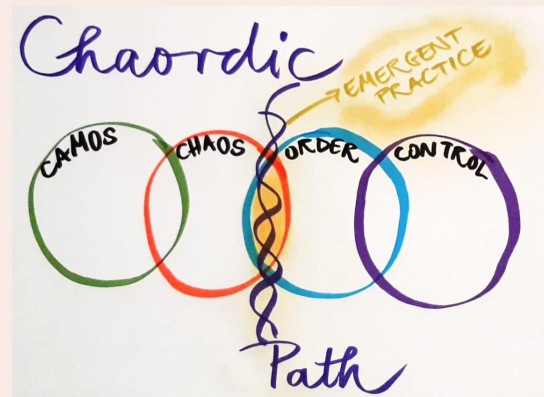 Chaordic
EMERGENT
PRACTICE
CAMOS CHAOS ORDER CONTROL
Path